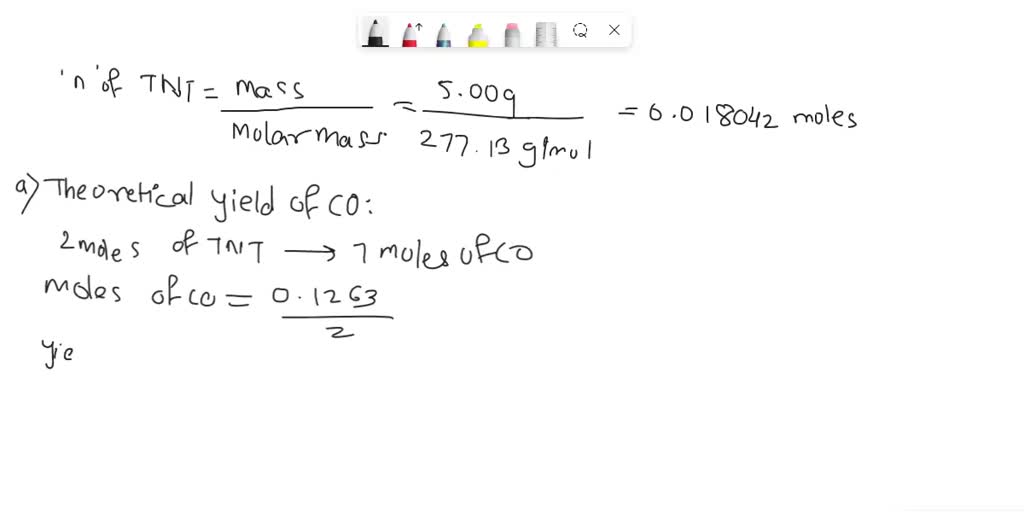 'n' of TNT = mass / Molar mass = 5.00g / 277.13 g/mol = 0.018042 moles
a) Theoretical yield of CO:
2 moles of TNT → 7 moles of CO
moles of CO = 0.1263 / 2
yie